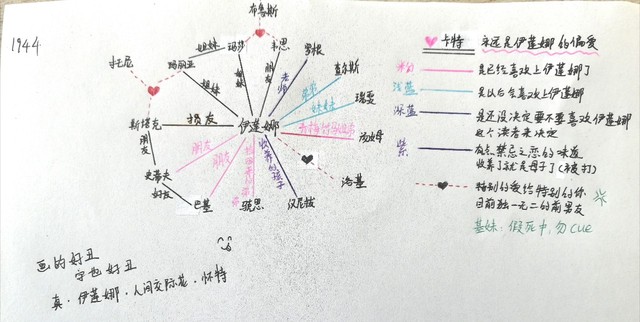 1944
布鲁斯
托尼
玛丽亚
姐妹
玛莎
姐妹
姐妹
卡恩
朋友
罗根
老师
查尔斯
妹妹
瑞雯
汤姆
斯塔克
损友
伊莲娜
朋友
史蒂夫
好友
朋友
朋友
巴基
收养的孩子
汉尼拔
洛基
卡特
永远是伊莲娜的偏爱
粉
是已经喜欢上伊莲娜了
浅蓝
是以后会喜欢上伊莲娜
深蓝
是还没决定要不要喜欢伊莲娜
由读者来决定
紫
有点禁忌之恋的味道
收养了就是母子了(被打)
特别的爱给特别的你
目前独一无二的前男友
基妹:假死中,勿cue
画的好丑
字也好丑
真·伊莲娜·人间交际花·怀特